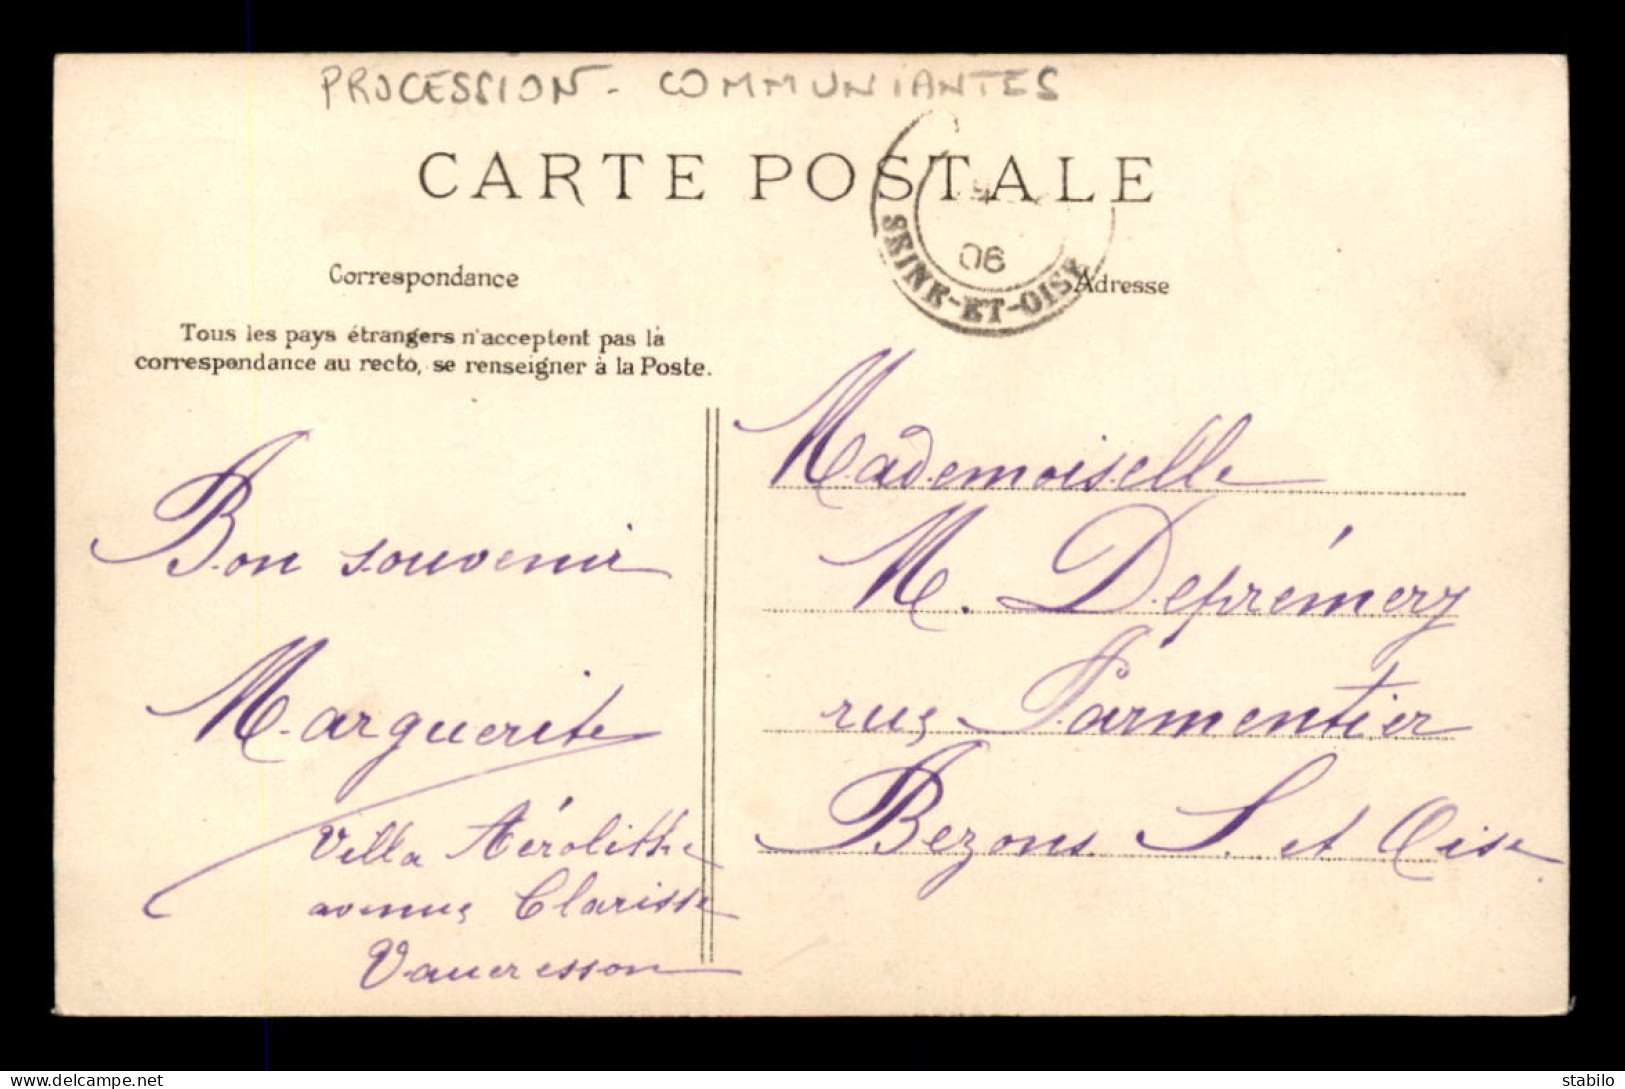 PROCESSION - COMMUNIANTES
CARTE POSTALE
SEINE-ET-OISE
06
Correspondance
Adresse
Tous les pays étrangers n'acceptent pas la
correspondance au recto, se renseigner à la Poste.
Bon souvenir
Marguerite
Villa Aérolithe
avenue Clarisse
Vaucresson
Mademoiselle
M. Defrémery
rue Parmentier
Bezons S. et Oise
delcampe.net
stabilo